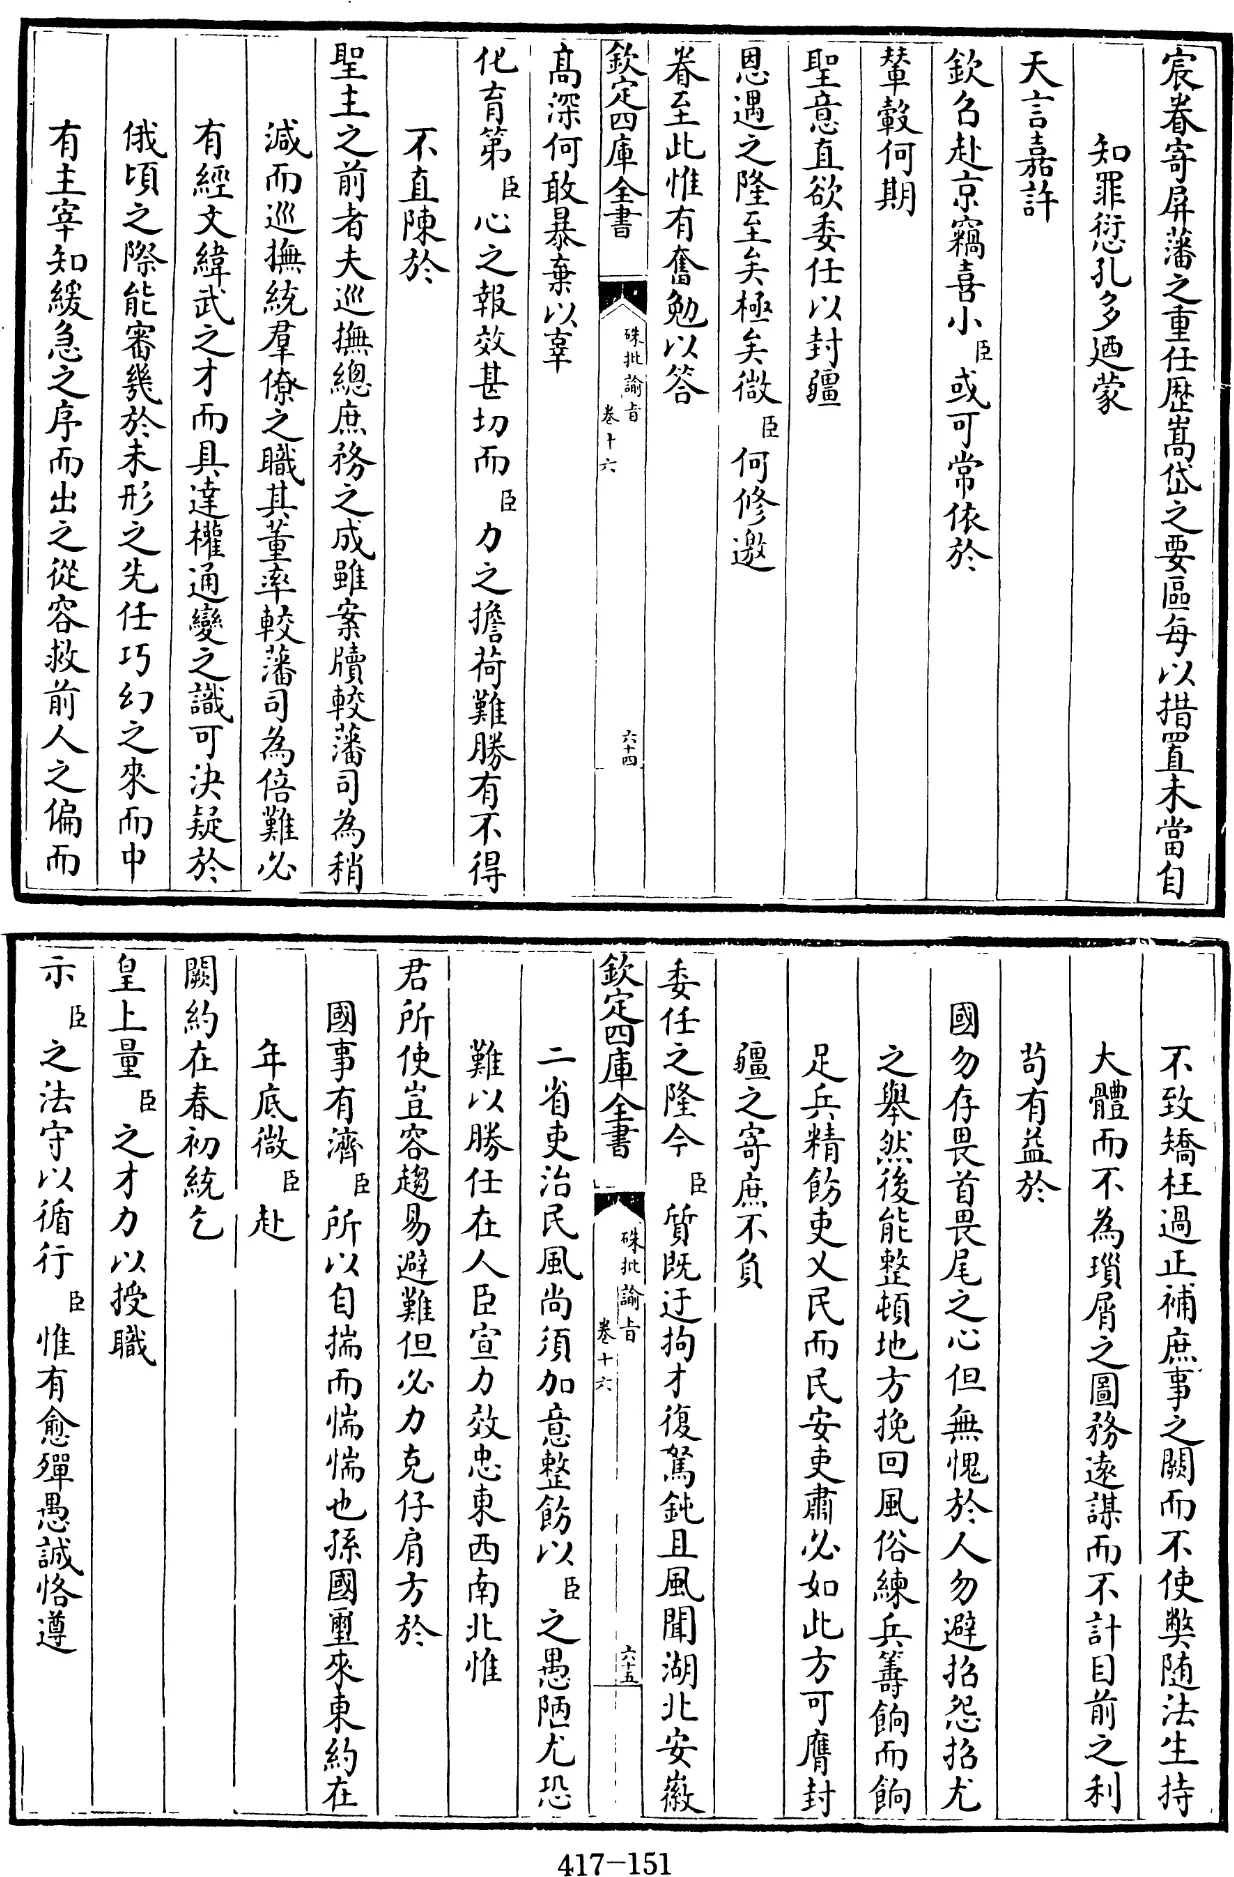 宸眷寄屏藩之重任歴嵩岱之要區每以措置未當自
知罪愆孔多廼蒙
天言嘉許
欽召赴京竊喜小臣或可常依於
輦轂何期
聖意直欲委任以封疆
恩遇之隆至矣極矣微臣何修邀
眷至此惟有奮勉以答
欽定四庫全書
硃批諭旨
卷十六
六十四
高深何敢暴棄以辜
化育第臣心之報效甚切而臣力之擔荷難勝有不得
不直陳於
聖主之前者夫巡撫總庶務之成雖案牘較藩司為稍
減而巡撫統羣僚之職其董率較藩司為倍難必
有經文緯武之才而具達權通變之識可決疑於
俄頃之際能審幾於未形之先任巧幻之來而中
有主宰知緩急之序而出之從容救前人之偏而
不致矯枉過正補庶事之闕而不使弊随法生持
大體而不為瑣屑之圖務遠謀而不計目前之利
苟有益於
國勿存畏首畏尾之心但無愧於人勿避招怨招尤
之舉然後能整頓地方挽回風俗練兵籌餉而餉
足兵精飭吏乂民而民安吏肅必如此方可膺封
疆之寄庶不負
委任之隆今臣質既迂拘才復駑鈍且風聞湖北安徽
欽定四庫全書
硃批諭旨
卷十六
六十五
二省吏治民風尚須加意整飭以臣之愚陋尤恐
難以勝任在人臣宣力效忠東西南北惟
君所使豈容趨易避難但必力克仔肩方於
國事有濟臣所以自揣而惴惴也孫國璽來東約在
年底微臣赴
闕約在春初統乞
皇上量臣之才力以授職
示臣之法守以循行臣惟有愈殫愚誠恪遵
417-151